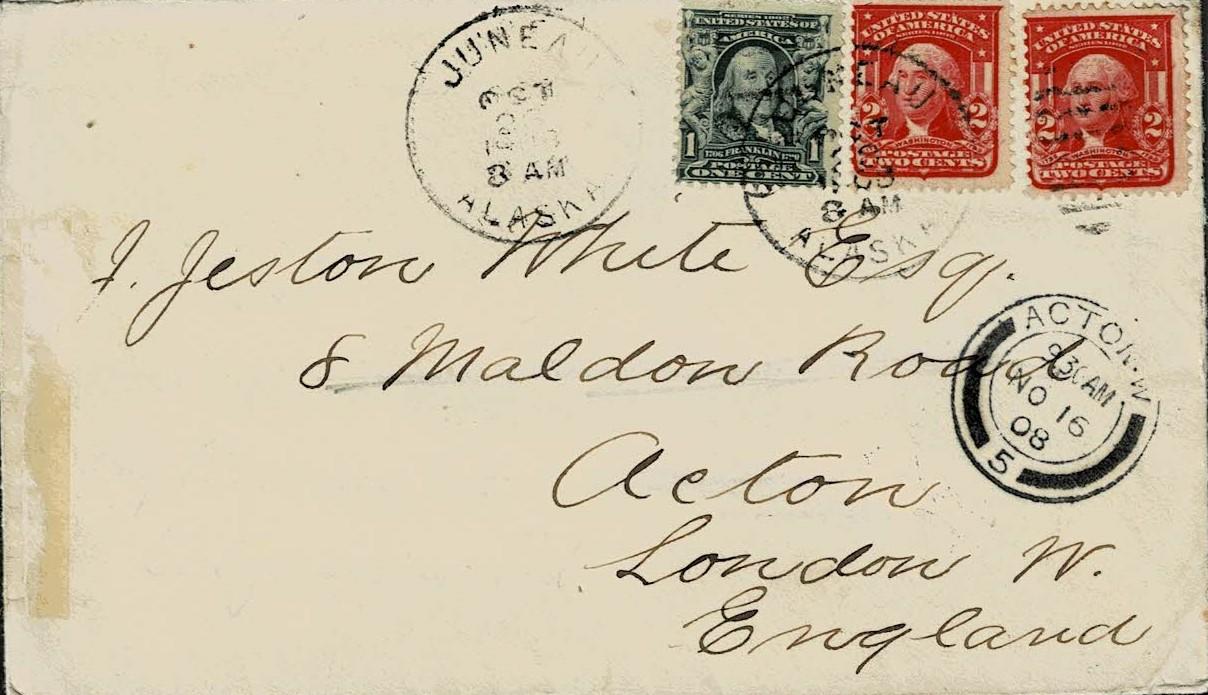 JUNEAU
OCT
8 AM
ALASKA
SERIES 1902
UNITED STATES OF
AMERICA
1 1
FRANKLIN
POSTAGE
ONE CENT
UNITED STATES
OF AMERICA
2 2
WASHINGTON
POSTAGE
TWO CENTS
UNITED STATES
OF AMERICA
2 2
WASHINGTON
POSTAGE
TWO CENTS
JUNEAU
8 AM
ALASKA
J. Jeston White Esq.
8 Maldon Road
Acton
London W.
England
ACTON.W
930AM
NO 16
08
5